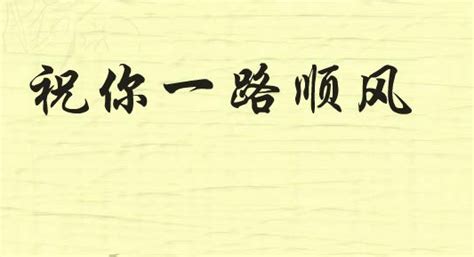 祝你一路顺风